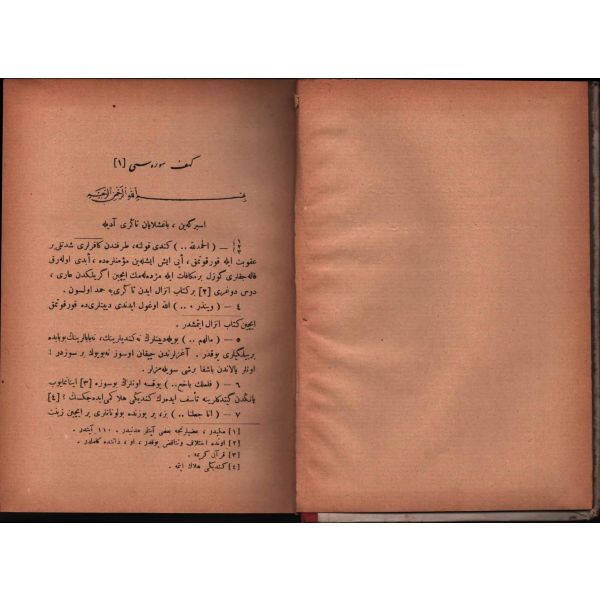 كهف سوره سى [١]
بسم الله الرحمن الرحيم
اسيركه‌ين ، باغشلايان تاڭرى آديله
١-٣ — ( الحمدلله .. ) كندى قولنه، طرفندن كافرلرى شدتلى بر
عقوبت ايله قورقوتمق ، أيى ايش ايشله‌ين مؤمنلره‌ده ، أبدى اوله‌رق
قاله‌جقلرى كوزل بر مكافات ايله مژده‌له‌مك ايچين اكريلكدن عارى ،
دوس دوغرى [٢] بر كتاب انزال ايدن تاڭرى‌يه حمد اولسون .
٤ — ( وينذر .. ) الله اوغول ايدندى دينلرى‌ده قورقوتمق
ايچين كتاب انزال ايتمشدر .
٥ — ( مالهم .. ) بويله دينلرك نه كنديلرينك، نه بابالرينك بوبابده
بر بيلكيلرى يوقدر . آغزلرندن چيقان اوسوز نه بويوك بر سوزدر !
اونلر يالاندن باشقا برشى سويله‌مزلر .
٦ — ( فلعلك باخع.. ) يوقسه اونلرك بوسوزه [٣] اينانمايوب
يانكدن كيتدكلرينه تأسف ايده‌رك كنديكى هلاكمى ايده‌جكسك ! [٤]
٧ — ( انا جعلنا .. ) بز، ير يوزنده بولونانلرى ير ايچين زينت
[١] مكيدر ، بعضيلرنجه بعض آيتلر مدنيدر . ١١٠ آيتدر .
[٢] اونده اختلاف وتناقض يوقدر ، او ، ذاتنده كاملدر .
[٣] قرآن كريمه .
[٤] كنديكى هلاك ايتمه .